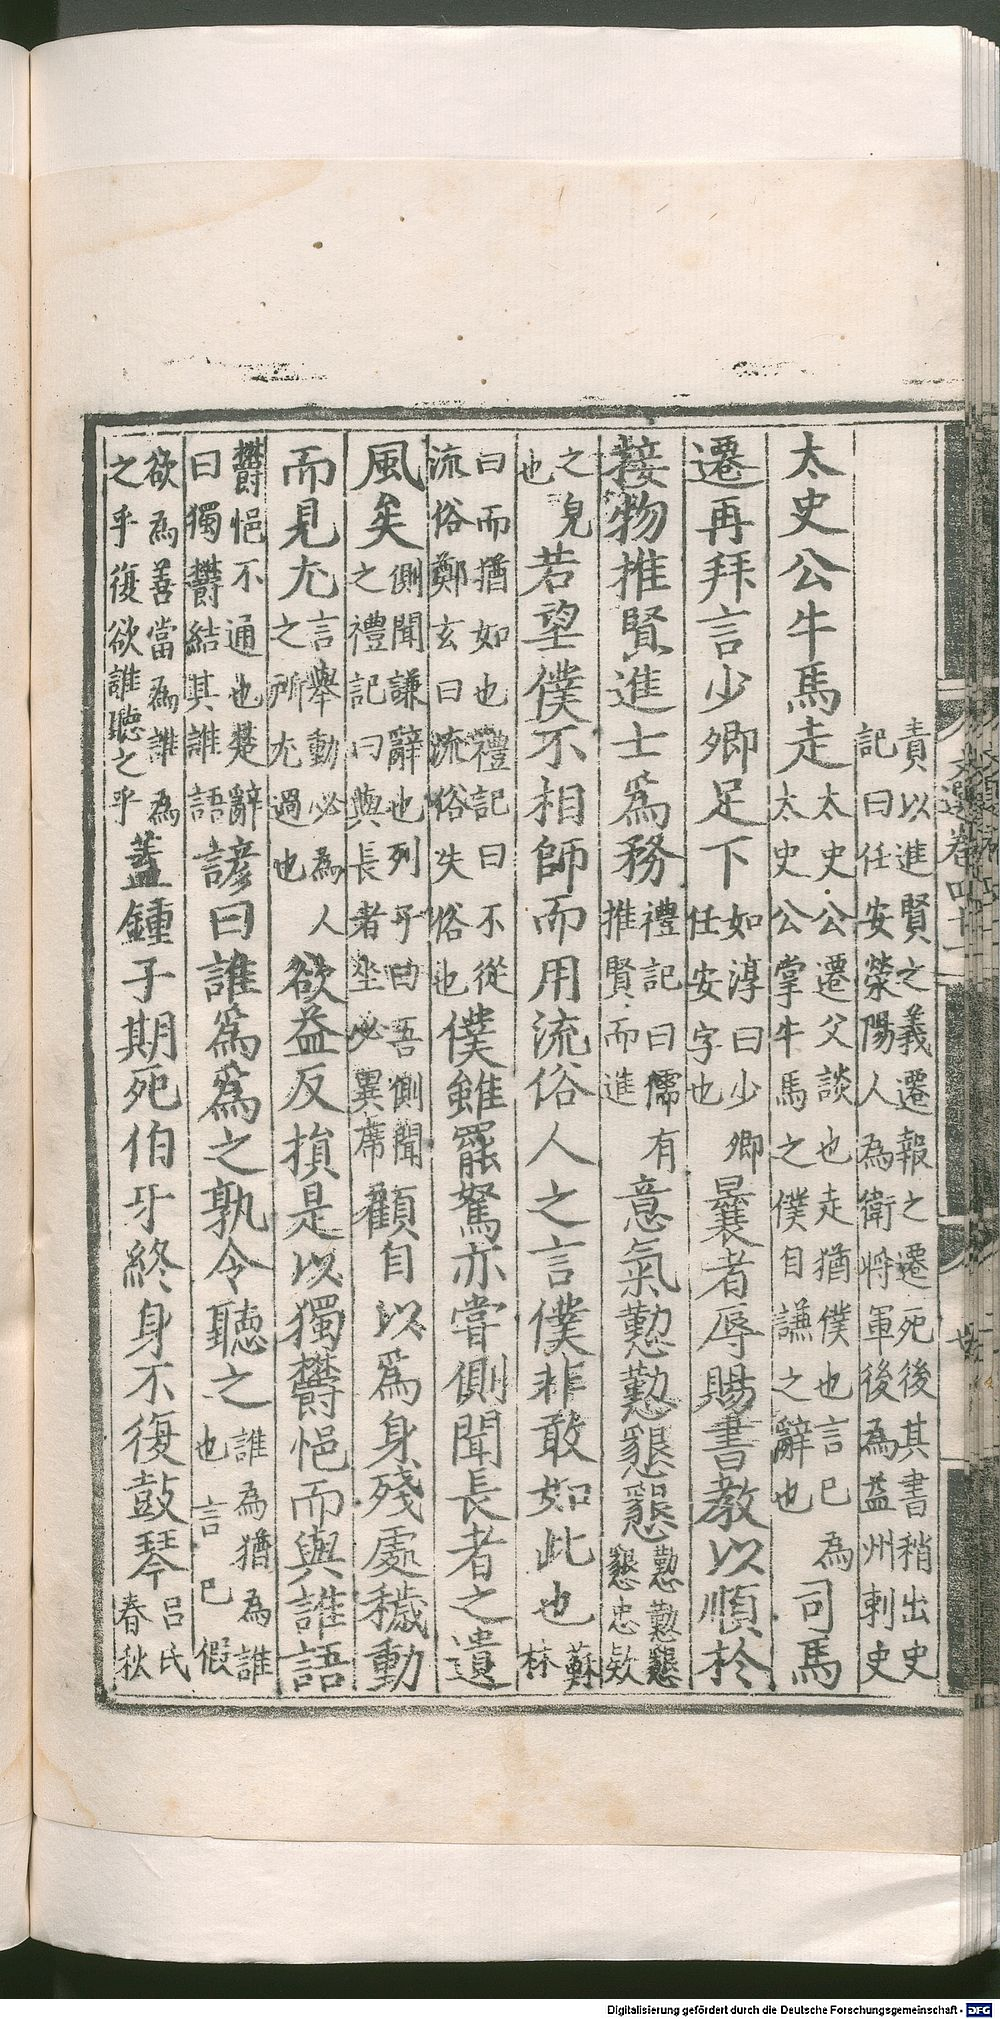 責以進賢之義遷報之遷死後其書稍出史
記曰任安滎陽人為衛將軍後為益州刺史
太史公牛馬走太史公遷父談也走猶僕也言巳為
太史公掌牛馬之僕自謙之辭也司馬
遷再拜言少卿足下如淳曰少卿
任安字也曩者辱賜書教以順於
接物推賢進士爲務禮記曰儒有
推賢而進意氣懃懃懇懇懃懃懇
懇忠款
之皃
也若望僕不相師而用流俗人之言僕非敢如此也蘇
林
曰而猶如也禮記曰不從
流俗鄭玄曰流俗失俗也僕雖罷駑亦嘗側聞長者之遺
風矣側聞謙辭也列子曰吾側聞
之禮記曰與長者坐必異席顧自以爲身殘處穢動
而見尤言舉動必為人
之所尤過也欲益反損是以獨欝悒而與誰語
欝悒不通也楚辭
曰獨欝結其誰語諺曰誰爲爲之孰令聽之誰為猶為誰
也言巳假
欲為善當為誰為
之乎復欲誰聽之乎蓋鍾子期死伯牙終身不復鼓琴呂氏
春秋
文選卷四十一
Digitalisierung gefördert durch die Deutsche Forschungsgemeinschaft - DFG